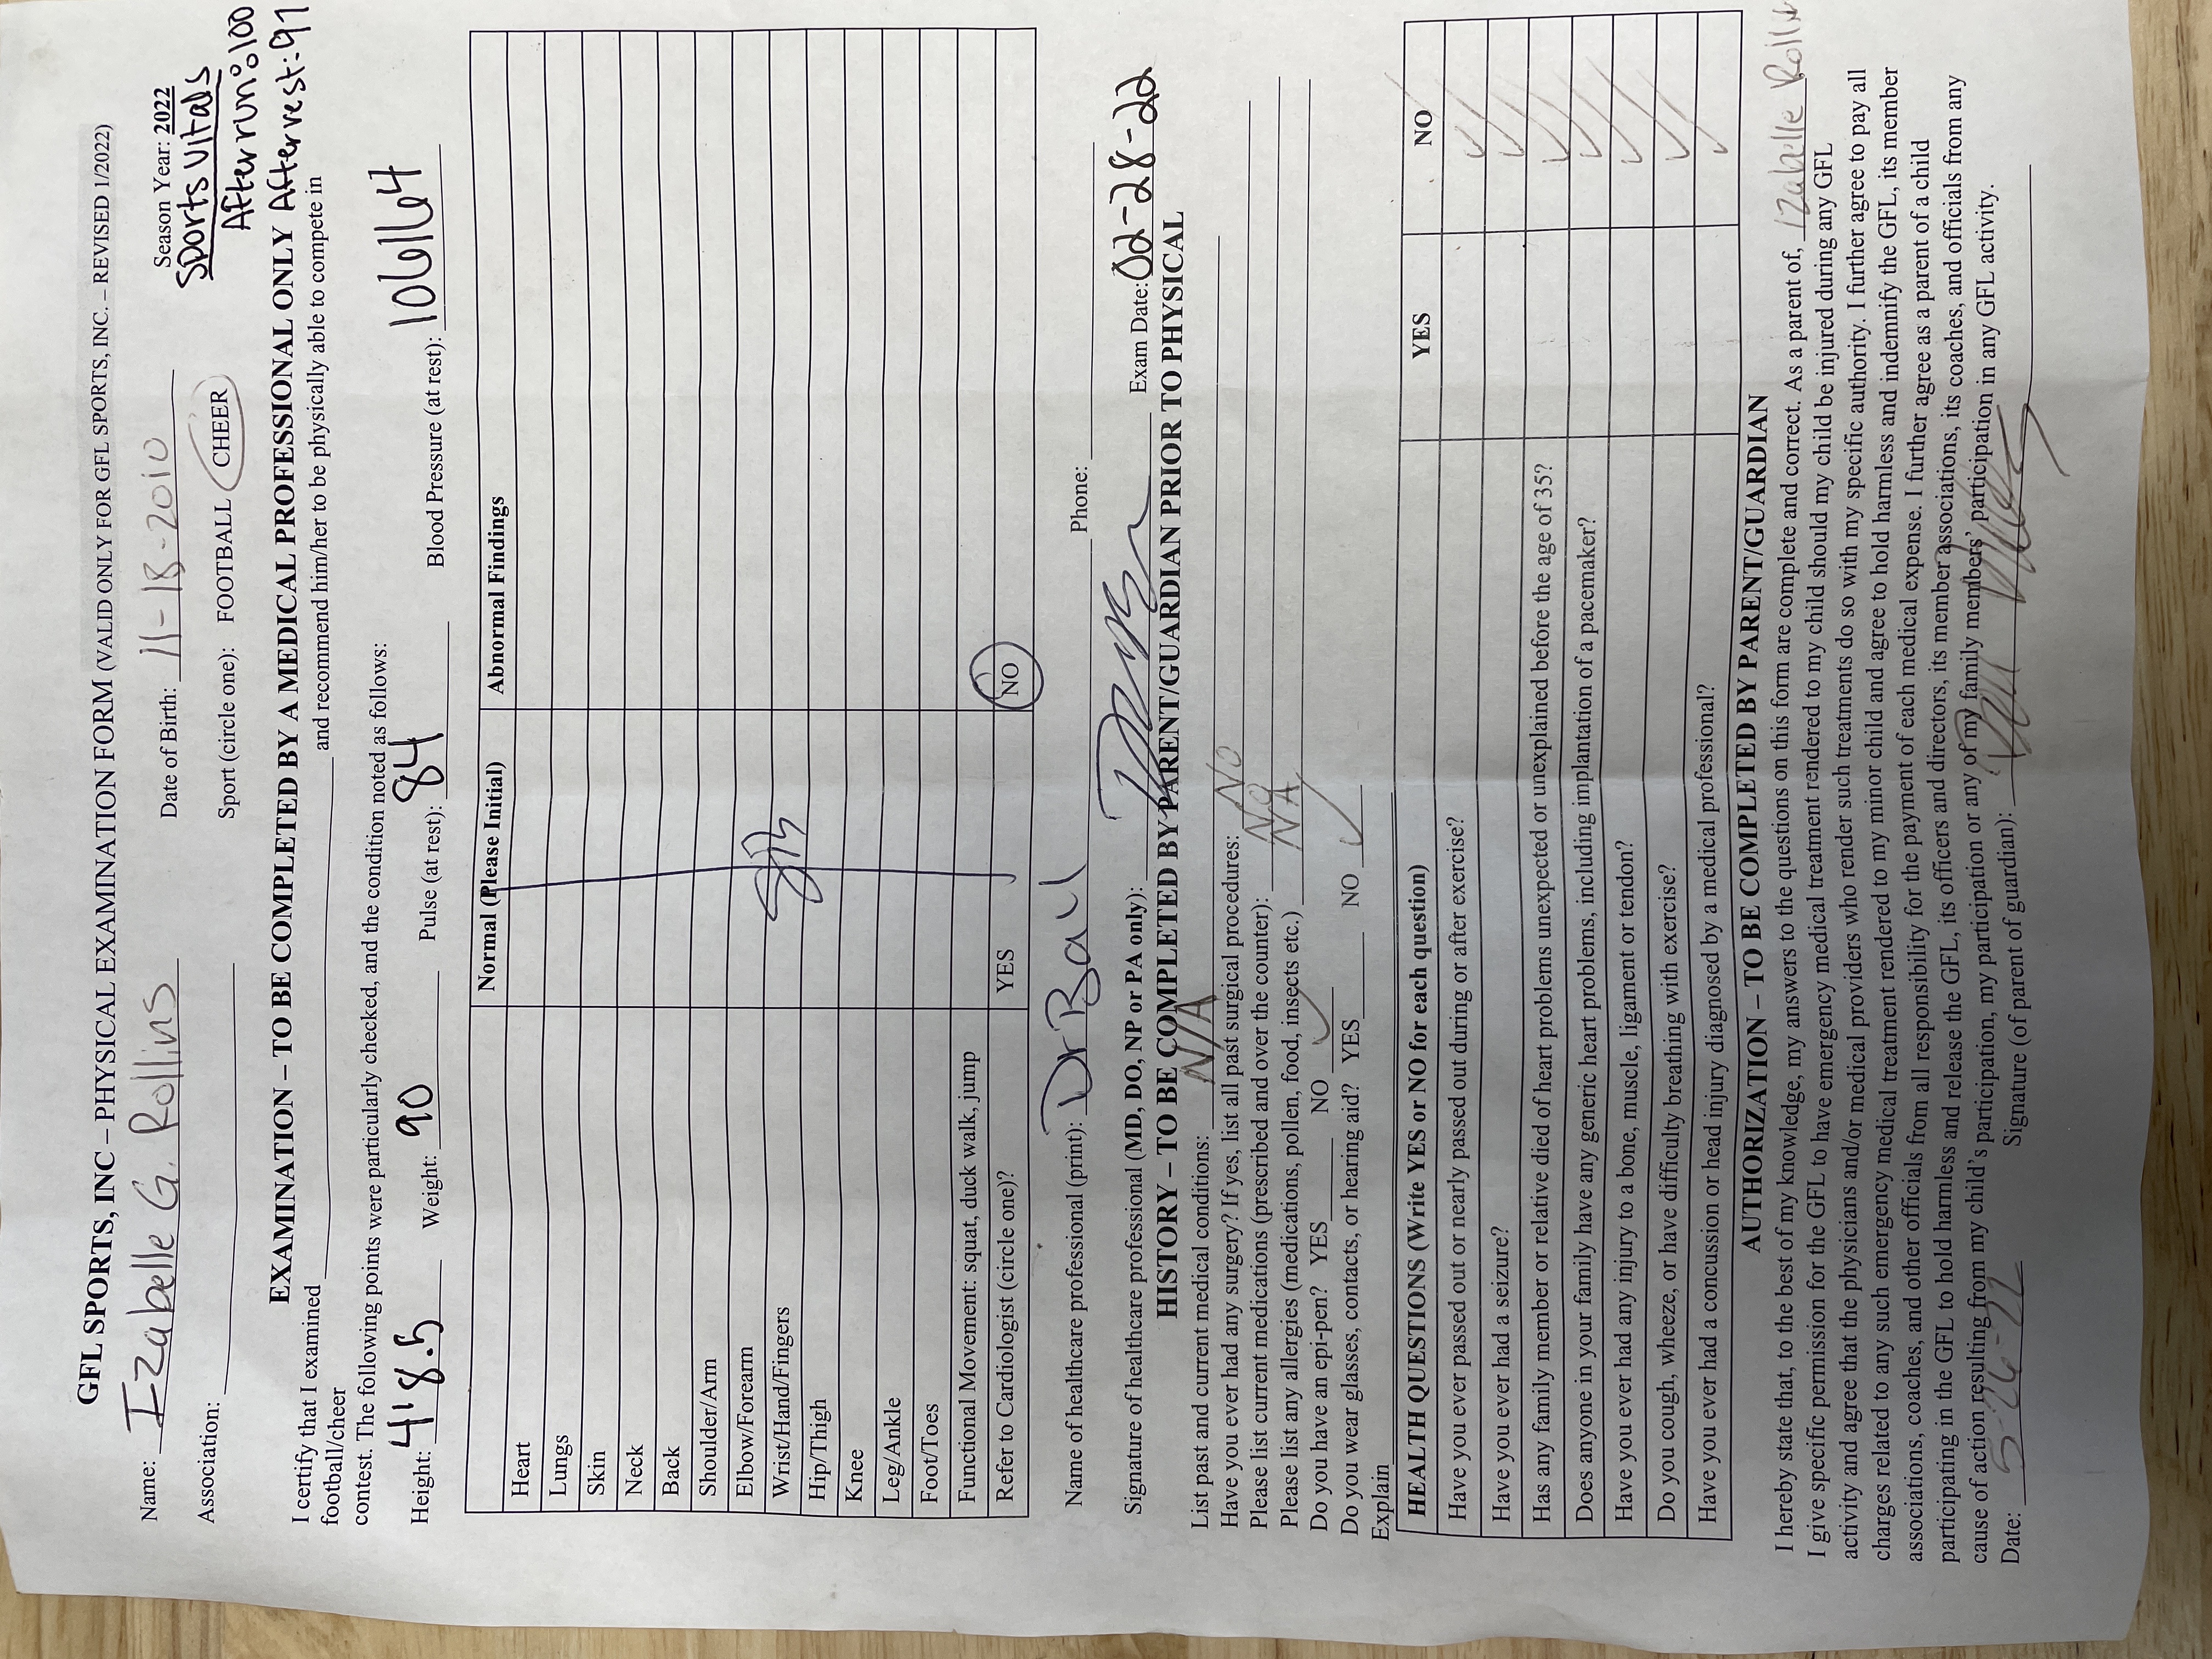 GFL SPORTS, INC – PHYSICAL EXAMINATION FORM (VALID ONLY FOR GFL SPORTS, INC. – REVISED 1/2022)
Name: Izabelle G. Rollins Date of Birth: 11-18-2010 Season Year: 2022
Sports Vitals
Association: Sport (circle one): FOOTBALL CHEER After run: 100
EXAMINATION – TO BE COMPLETED BY A MEDICAL PROFESSIONAL ONLY After rest: 91
I certify that I examined and recommend him/her to be physically able to compete in
football/cheer
contest. The following points were particularly checked, and the condition noted as follows:
Height: 4'8.5 Weight: 90 Pulse (at rest): 84 Blood Pressure (at rest): 106/64
Normal (Please Initial) Abnormal Findings
Heart
Lungs
Skin
Neck
Back
Shoulder/Arm
Elbow/Forearm
Wrist/Hand/Fingers
Hip/Thigh
Knee
Leg/Ankle
Foot/Toes
Functional Movement: squat, duck walk, jump
Refer to Cardiologist (circle one)? YES NO
Name of healthcare professional (print): Dr Ball Phone:
Signature of healthcare professional (MD, DO, NP or PA only): Exam Date: 02-28-22
HISTORY – TO BE COMPLETED BY PARENT/GUARDIAN PRIOR TO PHYSICAL
List past and current medical conditions: N/A
Have you ever had any surgery? If yes, list all past surgical procedures: No
Please list current medications (prescribed and over the counter): No
Please list any allergies (medications, pollen, food, insects etc.) NA
Do you have an epi-pen? YES NO ✓
Do you wear glasses, contacts, or hearing aid? YES NO ✓
Explain
HEALTH QUESTIONS (Write YES or NO for each question) YES NO
Have you ever passed out or nearly passed out during or after exercise? ✓
Have you ever had a seizure? ✓
Has any family member or relative died of heart problems unexpected or unexplained before the age of 35? ✓
Does anyone in your family have any generic heart problems, including implantation of a pacemaker? ✓
Have you ever had any injury to a bone, muscle, ligament or tendon? ✓
Do you cough, wheeze, or have difficulty breathing with exercise? ✓
Have you ever had a concussion or head injury diagnosed by a medical professional? ✓
AUTHORIZATION – TO BE COMPLETED BY PARENT/GUARDIAN
I hereby state that, to the best of my knowledge, my answers to the questions on this form are complete and correct. As a parent of, Izabelle Rollin
I give specific permission for the GFL to have emergency medical treatment rendered to my child should my child be injured during any GFL
activity and agree that the physicians and/or medical providers who render such treatments do so with my specific authority. I further agree to pay all
charges related to any such emergency medical treatment rendered to my minor child and agree to hold harmless and indemnify the GFL, its member
associations, coaches, and other officials from all responsibility for the payment of each medical expense. I further agree as a parent of a child
participating in the GFL to hold harmless and release the GFL, its officers and directors, its member associations, its coaches, and officials from any
cause of action resulting from my child's participation, my participation or any of my family members' participation in any GFL activity.
Date: 5-26-22 Signature (of parent of guardian):